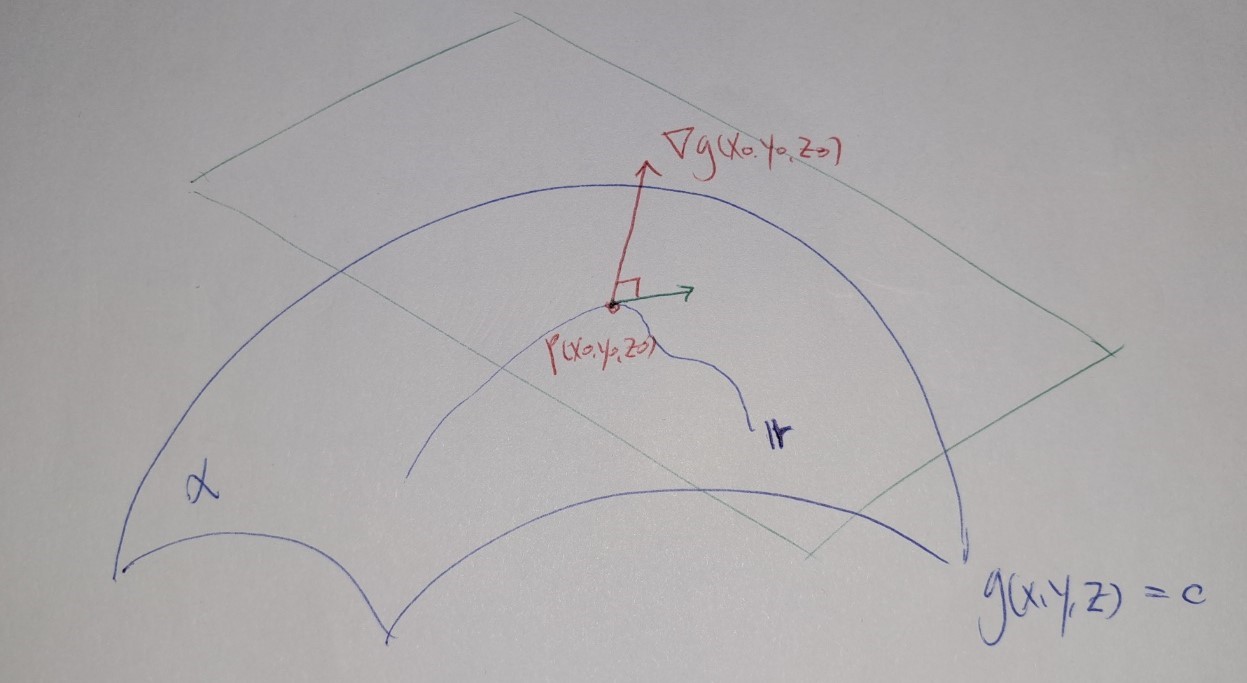 ∇g(x₀,y₀,z₀)
P(x₀,y₀,z₀)
r
α
g(x,y,z) = c